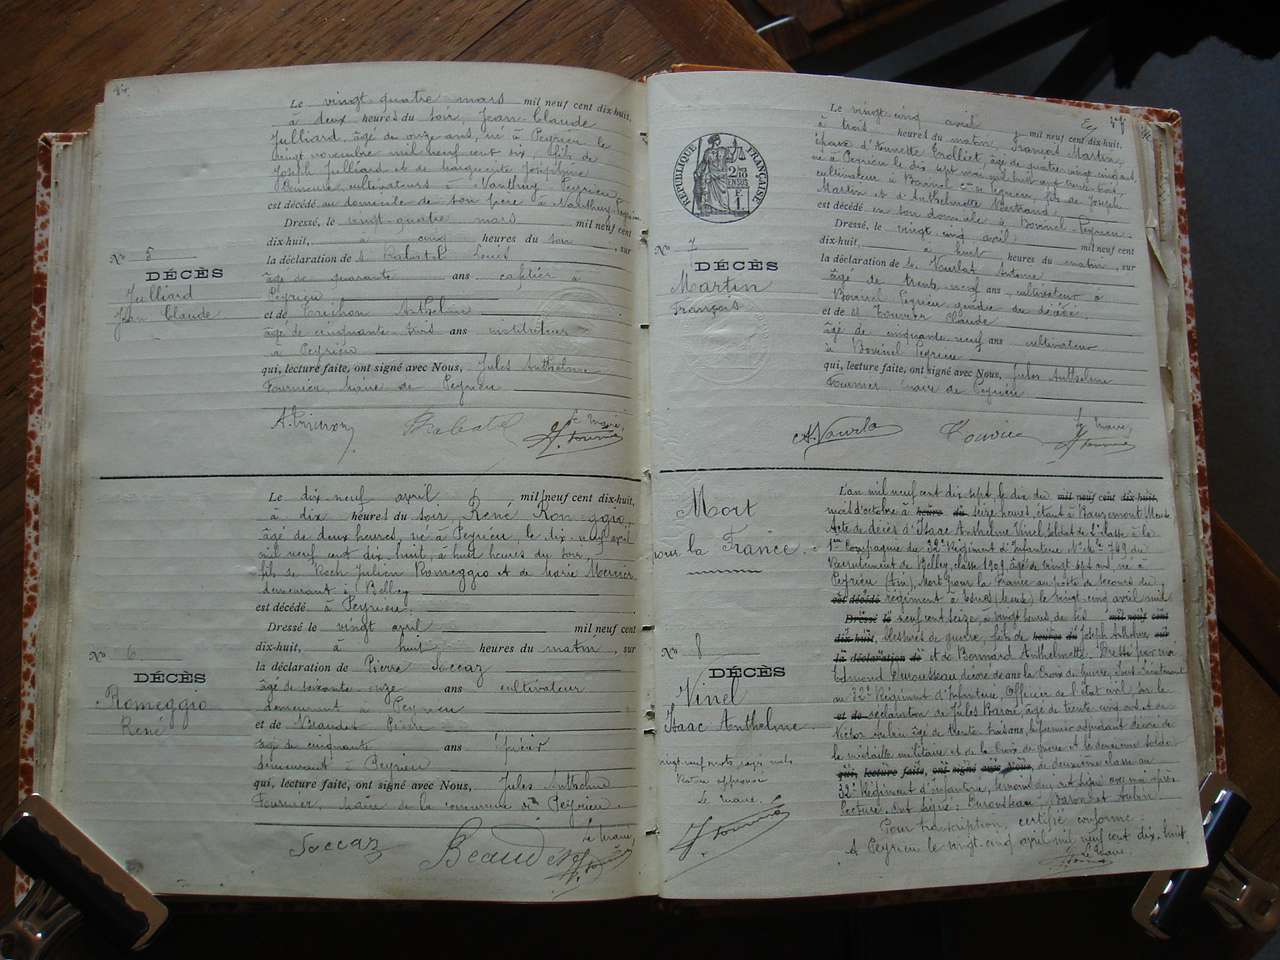 Le vingt-quatre mars mil neuf cent dix-huit,
à deux heures du soir, Jean-Claude
Julliard, âgé de onze ans, né à Peyrieu le
vingt novembre mil neuf cent six, fils de
Joseph Julliard et de Marguerite Joséphine
cultivateurs à Peyrieu
est décédé au domicile de son père à
Dressé le vingt-quatre mars mil neuf cent
dix-huit, à cinq heures du soir, sur
la déclaration de Louis
âgé de quarante ans cafetier à
Peyrieu
et de Anthelme
âgé de cinquante trois ans instituteur
à Peyrieu
qui, lecture faite, ont signé avec Nous, Jules Anthelme
Fournier, maire de Peyrieu
Le Maire,
No 5
DÉCÈS
Julliard
Jean Claude
Le dix-neuf avril mil neuf cent dix-huit,
à dix heures du soir René Romeggio,
âgé de deux heures, né à Peyrieu, le dix-neuf avril
mil neuf cent dix huit, à huit heures du soir,
fils de Roch Julien Romeggio et de Marie Mercier
demeurant à Belley
est décédé à Peyrieu.
Dressé le vingt avril mil neuf cent
dix-huit, à huit heures du matin, sur
la déclaration de Pierre Soccaz
âgé de soixante onze ans cultivateur
demeurant à Peyrieu
et de Beaudet Pierre
âgé de cinquante ans épicier
demeurant à Peyrieu
qui, lecture faite, ont signé avec Nous, Jules Anthelme
Fournier, maire de la commune de Peyrieu.
Le Maire,
Soccaz
No 6
DÉCÈS
Romeggio
René
Le vingt-cinq avril mil neuf cent dix-huit,
à trois heures du matin, François Martin,
époux d'Annette Trolliet, âgé de quatre-vingt-cinq ans
né à Peyrieu le dix sept mil huit cent trente trois,
cultivateur à Peyrieu, fils de Joseph
Martin et d'Anthelmette Bertrand
est décédé en son domicile à Peyrieu
Dressé le vingt cinq avril mil neuf cent
dix-huit, à huit heures du matin, sur
la déclaration de Antoine
âgé de trente neuf ans, cultivateur à
Peyrieu gendre du décédé
et de Claude
âgé de cinquante neuf ans cultivateur
à Peyrieu
qui, lecture faite, ont signé avec Nous, Jules Anthelme
Fournier, maire de Peyrieu
Le Maire,
RÉPUBLIQUE FRANÇAISE
No 7
DÉCÈS
Martin
François
Mort
pour la France.
No 8
DÉCÈS
Vinel
Isaac Anthelme
vingt-neuf mots rayés nuls
Le Maire.
L'an mil neuf cent dix sept, le dix du mil neuf cent dix-huit,
mois d'octobre à heures du seize heures, étant à
Acte de décès d'Isaac Anthelme Vinel, soldat de 2e classe à la
1re Compagnie du 32e Régiment d'Infanterie No Mle 749 du
Recrutement de Belley, classe 1909, âgé de vingt sept ans, né à
Peyrieu (Ain), Mort pour la France au poste de secours du
est décédé régiment à (Meuse) le vingt cinq avril mil
Dressé le neuf cent seize, à vingt heures mil neuf cent
dix-huit, blessures de guerre, fils de heures du Joseph Anthelme sur
la déclaration de et de Bonnard Anthelmette. Dressé par moi
Edmond Durousseau décoré de la Croix de Guerre, sous-lieutenant
au 32e Régiment d'Infanterie, Officier de l'état civil, sur la
et de déclaration de Jules Baron, âgé de trente cinq ans et de
Victor Aubin âgé de trente trois ans, le premier adjudant décoré de
la médaille militaire et de la Croix de guerre et le deuxième soldat
qui, lecture faite, ont signé avec Nous, de deuxième classe au
32e Régiment d'infanterie, témoins qui ont signé avec moi après
lecture. Ont signé : Durousseau, Baron et Aubin
Pour transcription, certifié conforme :
A Peyrieu le vingt-cinq avril mil neuf cent dix-huit
Le Maire,